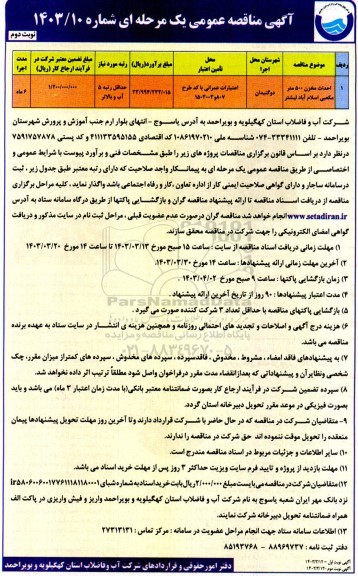 آگهی مناقصه عمومی یک مرحله ای شماره ۱۴۰۳/۱۰
نوبت دوم
ردیف
موضوع مناقصه
شهرستان محل اجرا
محل تأمین اعتبار
مبلغ برآورد(ریال)
رتبه مورد نیاز
مبلغ تضمین معتبر شرکت در فرآیند ارجاع کار (ریال)
مدت اجرا
۱
احداث مخزن ۵۰۰ متر مکعبی اسلام آباد لیشتر
دوگنبدان
اعتبارات عمرانی با کد طرح
حداقل رتبه ۵ آب و بالاتر
۶ ماه
شرکت آب و فاضلاب استان کهگیلویه و بویراحمد به آدرس یاسوج - انتهای بلوار ارم جنب آموزش و پرورش شهرستان
بویراحمد - تلفن ۳۳۳۴۱۱۱۱-۰۷۴ شناسه ملی ۱۰۸۶۱۹۷۰۲۱۰ کد اقتصادی ۴۱۱۱۳۳۵۹۵۱۵۵ و کد پستی ۷۵۹۱۷۵۷۸۷۸
درنظر دارد بر اساس قانون برگزاری مناقصات پروژه های زیر را طبق مشخصات فنی و برآورد پیوست با شرایط عمومی و
اختصاصی از طریق مناقصه عمومی یک مرحله ای به پیمانکار واجد صلاحیت که دارای رتبه معتبر طبق جدول زیر ، ثبت
درسامانه ساجار و دارای گواهی صلاحیت ایمنی کار از اداره تعاون ،کار و رفاه اجتماعی باشد واگذار نماید . کلیه مراحل برگزاری
مناقصه از دریافت اسناد مناقصه تا ارائه پیشنهاد مناقصه گران و بازگشایی پاکتها از طریق درگاه سامانه ستاد به آدرس
www.setadiran.ir انجام خواهد شد مناقصه گران درصورت عدم عضویت قبلی ، مراحل ثبت نام در سایت مذکور و دریافت
گواهی امضای الکترونیکی را جهت شرکت در مناقصه محقق سازند.
۱) مهلت زمانی دریافت اسناد مناقصه از سایت : ساعت ۱۵ صبح مورخ ۱۴۰۳/۰۳/۱۳ تا ساعت ۱۴ مورخ ۱۴۰۳/۰۳/۲۰
۲) آخرین مهلت زمانی ارائه پیشنهادها : ساعت ۱۴ مورخ ۱۴۰۳/۰۳/۳۰.
۳) زمان بازگشایی پاکتها : ساعت ۹ صبح مورخ ۱۴۰۳/۰۴/۰۲ .
۴) مدت اعتبار پیشنهادها : ۹۰ روز از تاریخ آخرین ارائه پیشنهاد .
۵) بازگشایی پاکتهای مناقصه با حداقل تعداد ۳ شرکت کننده صورت می گیرد .
۶) هزینه درج آگهی و اصلاحات و تجدید های احتمالی روزنامه و همچنین هزینه ی انتشار در سایت ستاد به عهده برنده
مناقصه می باشد.
۷) به پیشنهادهای فاقد امضاء ، مشروط ، مخدوش ، فاقدسپرده ، سپرده های مخدوش ، سپرده های کمتراز میزان مقرر، چک
شخصی ونظایرآن و پیشنهاداتی که بعدازانقضاء مدت مقرر درفراخوان واصل شود مطلقاً ترتیب اثر داده نخواهد شد.
۸) سپرده تضمین شرکت در فرآیند ارجاع کار بصورت ضمانتنامه معتبر بانکی(با مدت زمان اعتبار ۳ ماه) می باشد و باید
بصورت فیزیکی در موعد مقرر تحویل دبیرخانه استان گردد.
۹) متقاضیان شرکت در مناقصه که در حال حاضر با شرکت قرارداد دارند وتا آخرین روز مهلت تحویل پیشنهادها پیمان
منعقده را تحویل موقت ننموده اند حق شرکت در مناقصه را ندارند.
۱۰) سایر اطلاعات و جزئیات مربوط در اسناد مناقصه مندرج است.
۱۱) مهلت بازدید از پروژه و تایید فرم سایت ویزیت حداکثر ۳ روز پس از مهلت خرید اسناد می باشد.
۱۲) متقاضیان شرکت در مناقصه می بایست مبلغ ۲/۰۰۰/۰۰۰ ریال بابت خریداسناد به شماره شبای
نزد بانک مهر ایران شعبه یاسوج به نام شرکت آب و فاضلاب استان کهگیلویه و بویراحمد واریز و فیش واریزی در پاکت الف
همراه ضمانتنامه تحویل دبیرخانه شرکت نمایند.
۱۳) اطلاعات سامانه ستاد جهت انجام مراحل عضویت در سامانه : مرکز تماس : ۲۷۳۱۳۱۳۱
دفتر ثبت نامه : ۸۸۹۶۹۷۳۷ - ۸۵۱۹۳۷۶۸
دفتر امور حقوقی و قراردادهای شرکت آب وفاضلاب استان کهگیلویه و بویراحمد
ParsNamadData